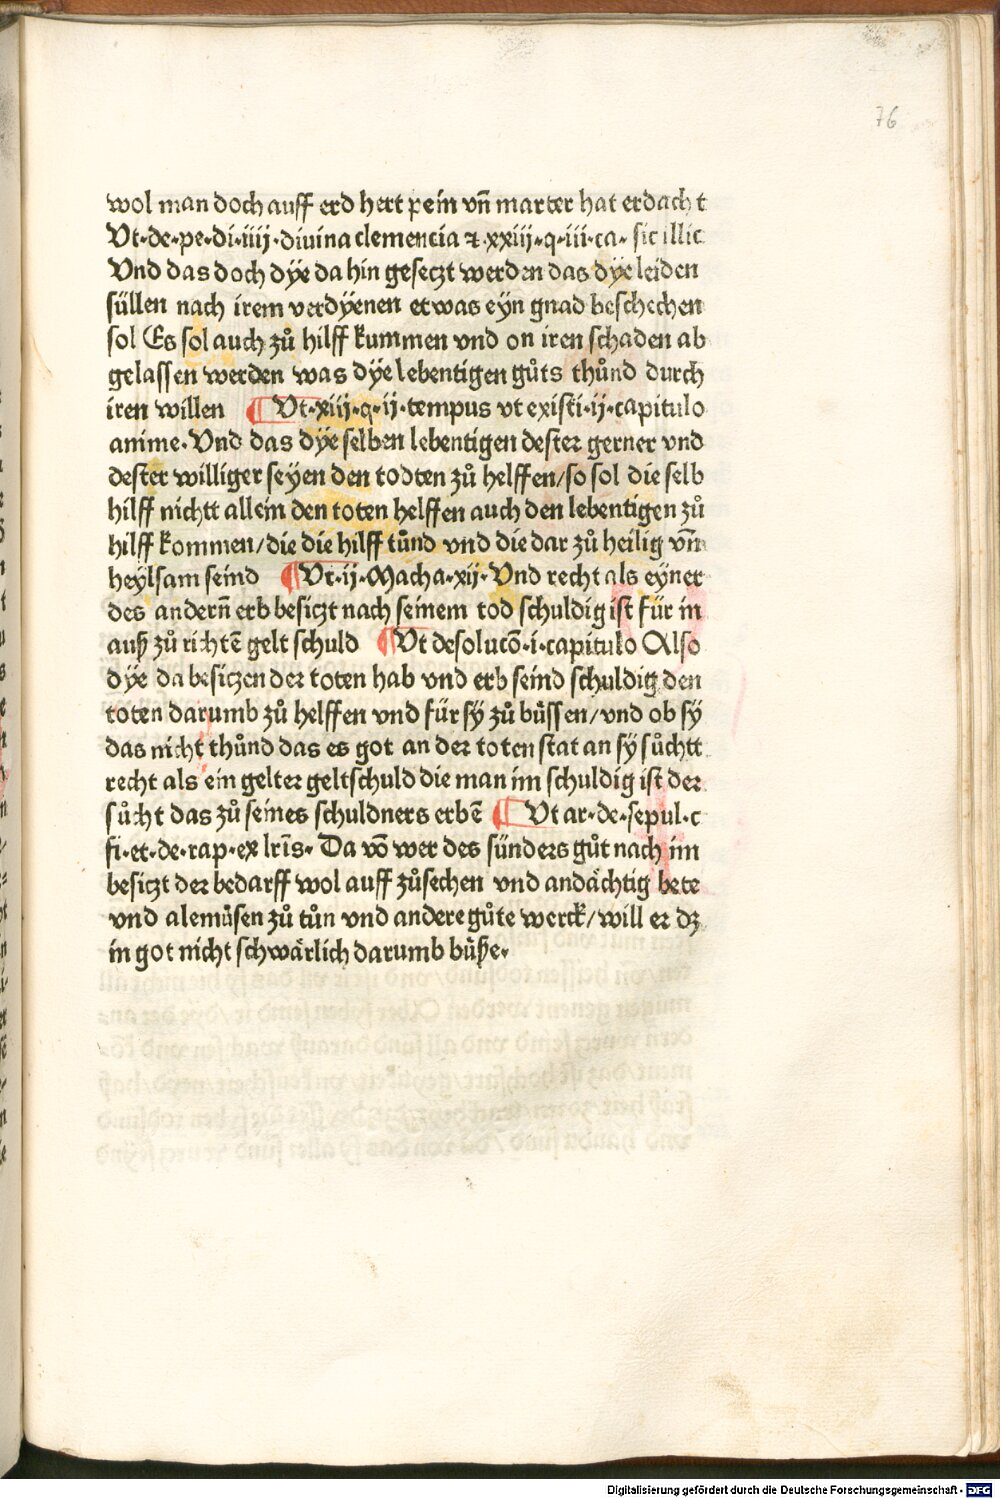 76
wol man doch auff erd hert pein vn̄ marter hat erdacht
Vt·de·pe·di·iiij·diuina clemencia ⁊·xxiij·q·iii·ca· sic illic
Vnd das doch dÿe da hin geseczt werden das dÿe leiden
süllen nach irem verdÿenen etwas eÿn gnad beschechen
sol Es sol auch zů hilff kummen vnd on iren schaden ab
gelassen werden was dÿe lebentigen gůts thůnd durch
iren willen ¶ Vt·xiij·q·ij·tempus vt existi·ij·capitulo
anime·Vnd das dÿe selben lebentigen dester gerner vnd
dester williger seÿen den todten zů helffen/so sol die selb
hilff nichtt allein den toten helffen auch den lebentigen zů
hilff kommen/die die hilff tůnd vnd die dar zů heilig vn̄
heÿlsam seind ¶Vt·ij·Macha·xij·Vnd recht als eÿner
des andern̄ erb besiczt nach seinem tod schuldig ist für in
auß zů richtē gelt schuld ¶Vt desolucō·i·capitulo Also
dÿe da besiczen der toten hab vnd erb seind schuldig den
toten darumb zů helffen vnd für sÿ zů büssen/vnd ob sÿ
das nicht thůnd das es got an der toten stat an sÿ sůchtt
recht als ein gelter geltschuld die man im schuldig ist der
sůcht das zů seines schuldners erbē ¶ Vt ar·de·sepul·c
fi·et·de·rap·ex lrīs· Da vō wer des sünders gůt nach im
besiczt der bedarff wol auff zůsechen vnd andächtig bete
vnd alemůsen zů tůn vnd andere gůte werck/will er dz
in got nicht schwärlich darumb büße·
Digitalisierung gefördert durch die Deutsche Forschungsgemeinschaft - DFG